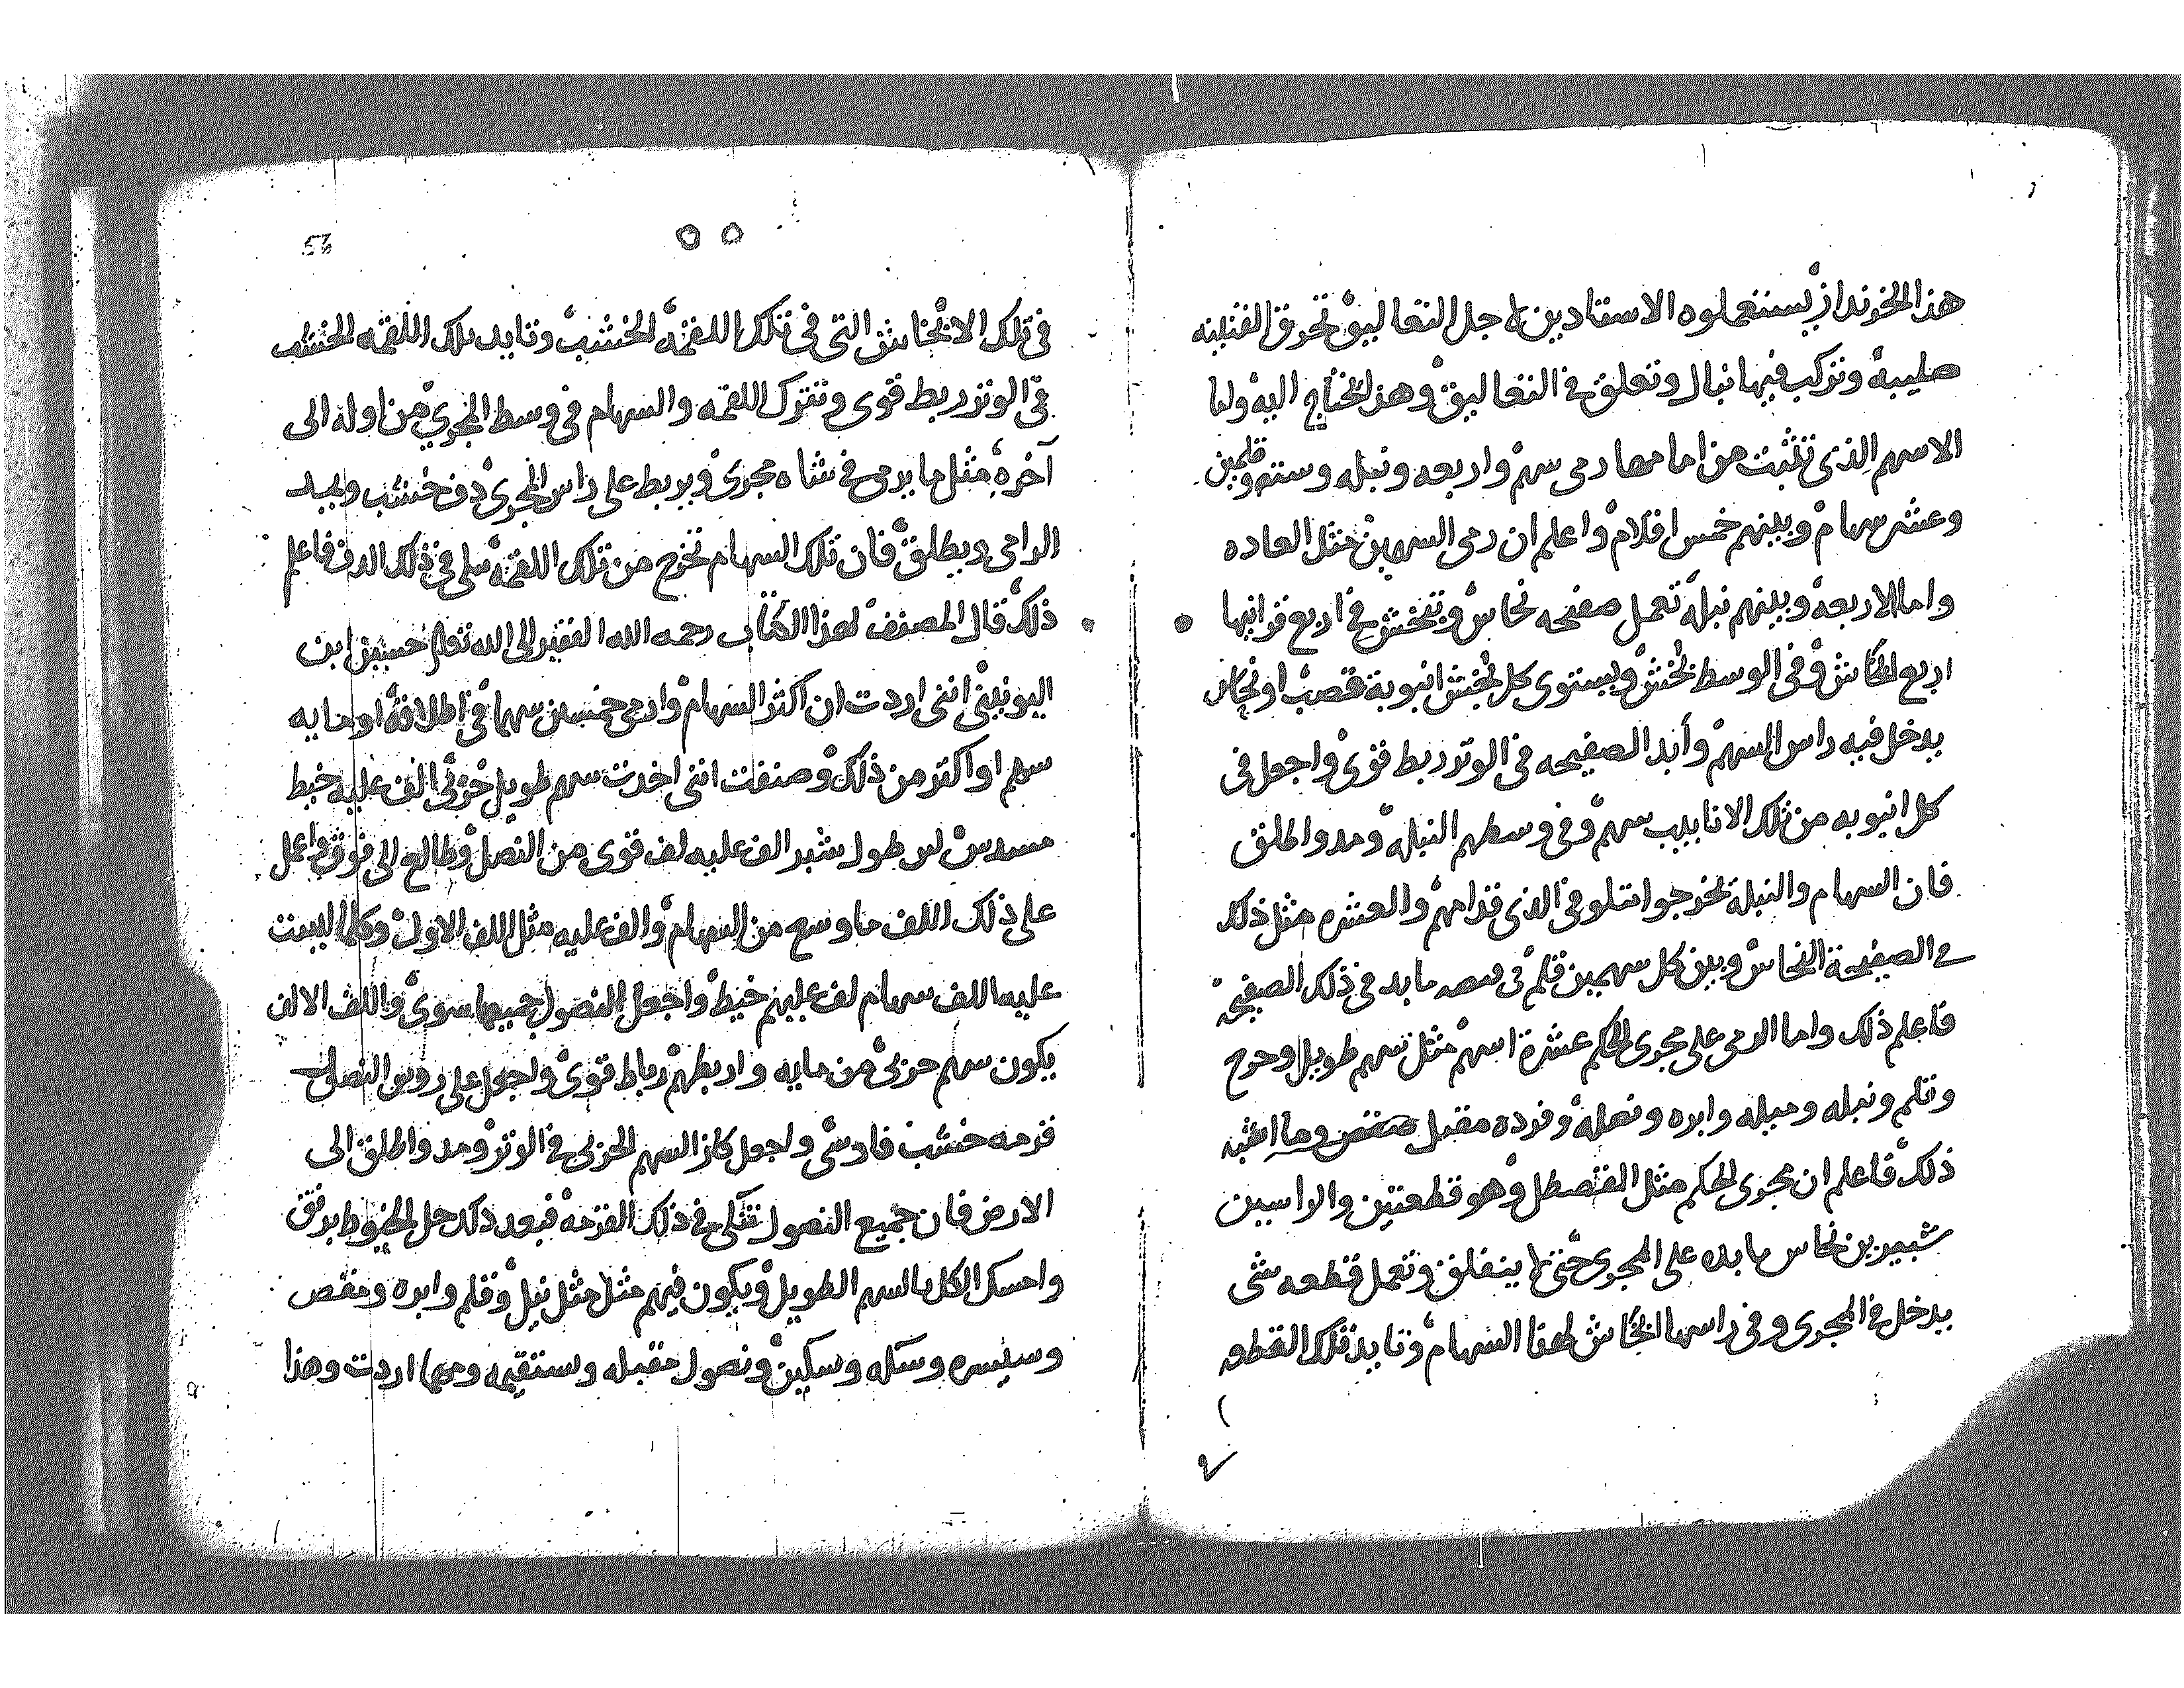 هذا الخونداز يستعملوه الاستادين لاجل التعاليق تحوق القنينه
صليبة وتركب فيها نبال وتعلق في التعاليق وهذا يحتاج اليه واما
الاسهم الذى تثبت من امامها رمى سهم واربعه ونبله وسته وقلمين
وعشر سهام وبينهم خمس اقلام واعلم ان رمى السهمين مثل العاده
واما الاربعة وبينهم نبلة تعمل صفحه نحاس وتخش في اربع قرانيها
اربع اخاش وفى الوسط نخش ويستوى كل نخش انبوبة قصب او نحاس
يدخل فيه راس السهم وأبد الصفيحه فى الوتر ربط قوى واجعل فى
كل انبوبه من تلك الانابيب سهم وفى وسطهم النبله ومد واطلق
فان السهام والنبلة يخرجوا اتتلو فى الذى قدامهم والعشره مثل ذلك
في الصفيحة النحاس وبين كل سهمين قلم فى مابد فى ذلك الصفيحه
فاعلم ذلك واما الرمى على مجرى الحكم عشرة اسهم مثل سهم طويل وحرح
وقلم ونبله وميله وابره ونعله وفرده مقبل مقص وما اشبه
ذلك فاعلم ان مجرى الحكم مثل القصطل وهو قطعتين والراسين
شبيرين نحاس مابده على المجرى حتى لا ينفلق وتعمل قطعه شى
يدخل في المجرى وفى راسها انخاش لهذا السهام وتابد تلك القطعه
56
في تلك الانخاش التى فى تلك اللقمة الخشب وتابد تلك اللقمه الخشب
فى الوتر ربط قوى وتترك اللقمه والسهام فى وسط المجرى من اوله الى
آخره مثل ما يرمى فى شاه مجرى ويربط على راس المجرى دف خشب ويمد
الرامى ويطلق فان تلك السهام تخرج من تلك اللقمة في ذلك الدف فاعلم
ذلك قال المصنف لهذا الكتاب رحمه الله الفقير الى الله تعالى حسين ابن
اليونينى اننى اردت ان اكثر السهام وارمى خمسين سهما فى اطلاقة او مايه
سهم او اكثر من ذلك وصنفت اننى اخدت سهم طويل حربى الف عليه خيط
مسدس طول شبر الف عليه لف قوى من النصل وطالع الى فوق واعمل
على ذلك اللف ما وسع من السهام والف عليه مثل اللف الاول وكلما البست
عليها اللف سهام لف عليهم خيط واجعل النصول جميعها سوى واللف الالف
يكون سهم حربى من مايه واربطهم رباط قوى واجعل على روس النصل
قرمه خشب فارسى واجعل كاز السهم الحربى في الوتر ومد واطلق الى
الارض فان جميع النصول تتكى في ذلك القرمه فبعد ذلك حل الخيوط برفق
وامسك الكل بالسهم الطويل ويكون فيهم مثل مثل نبل وقلم وابره ومقص
وسكين ونصول مقبله ومهما اردت وهذا